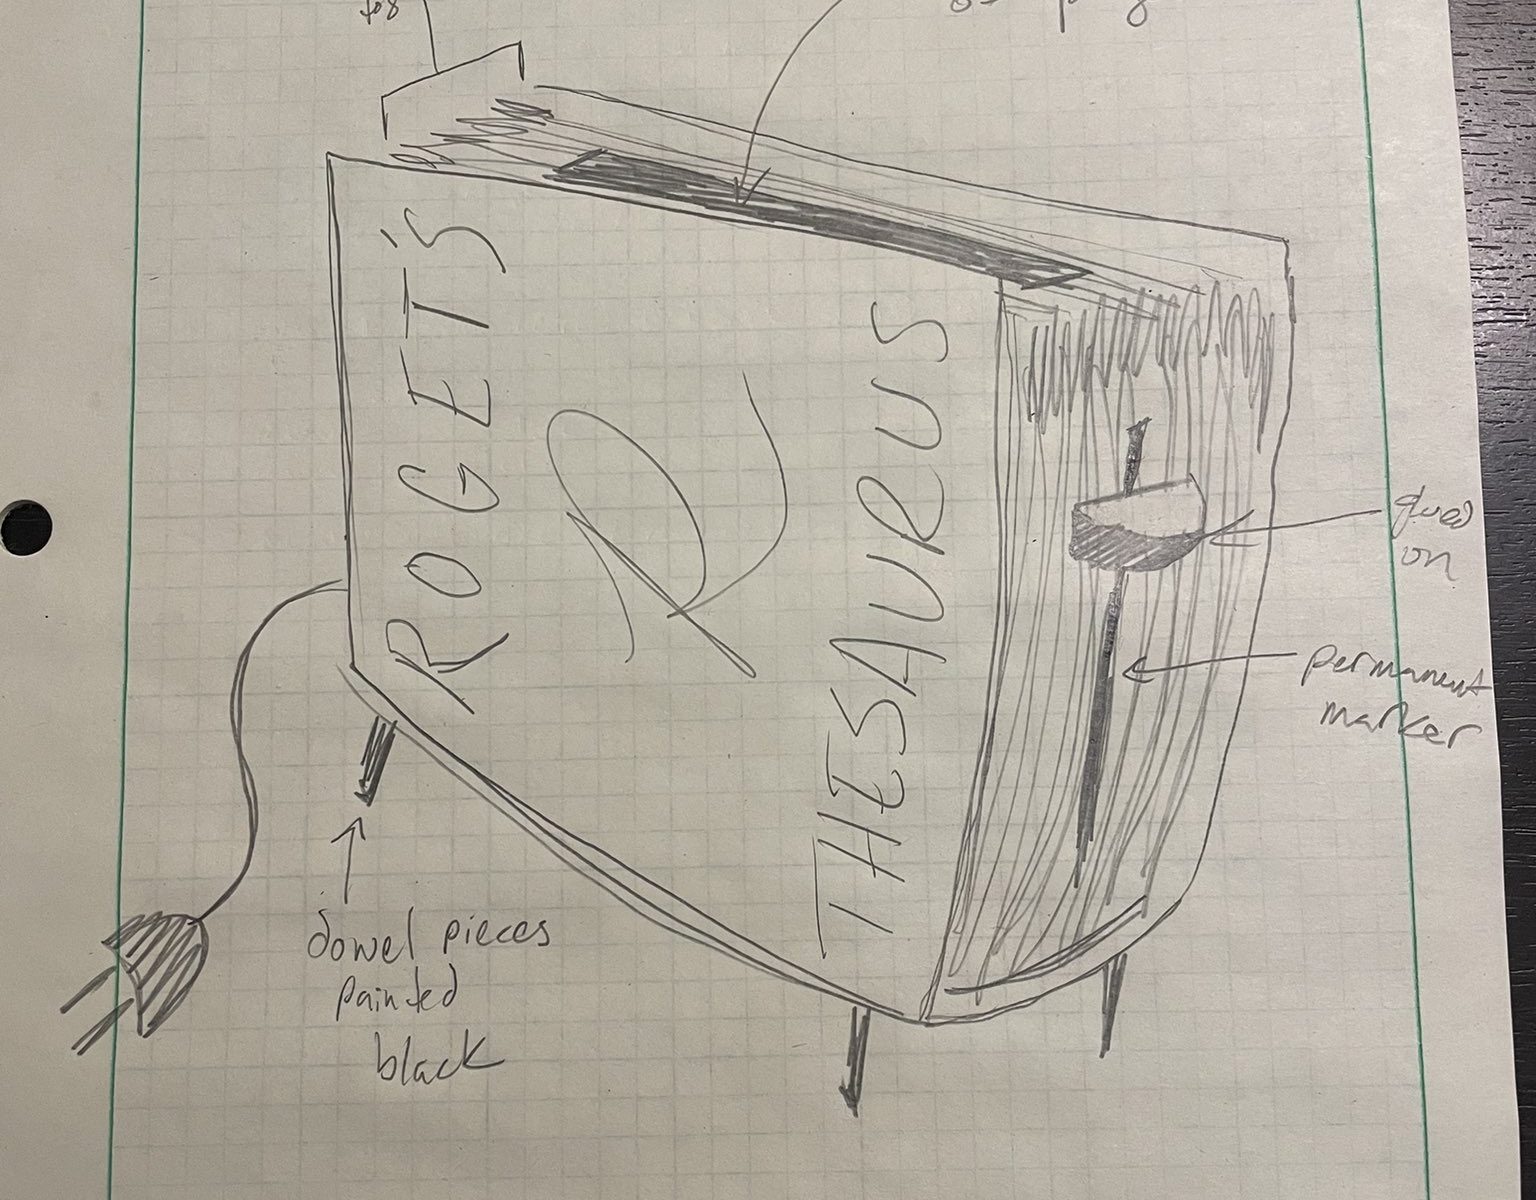 ROGET'S
R
THESAURUS
glued
on
permanent
marker
dowel pieces
painted
black